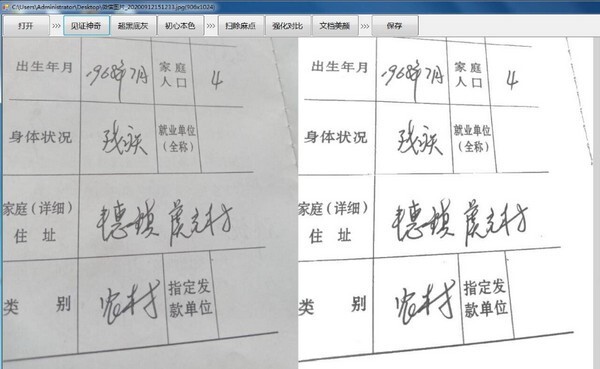 C:\Users\Administrator\Desktop\微信图片_20200912151233.jpg(906x1024)
打开 >>> 见证神奇 超黑底灰 初心本色 >>> 扫除麻点 强化对比 文档美颜 >>> 保存
出生年月 1968年7月 家庭人口 4
身体状况 残疾 就业单位(全称)
家庭(详细)住址 德镇 村
类别 农村 指定发款单位
出生年月 1968年7月 家庭人口 4
身体状况 残疾 就业单位(全称)
家庭(详细)住址 德镇 村
类别 农村 指定发款单位